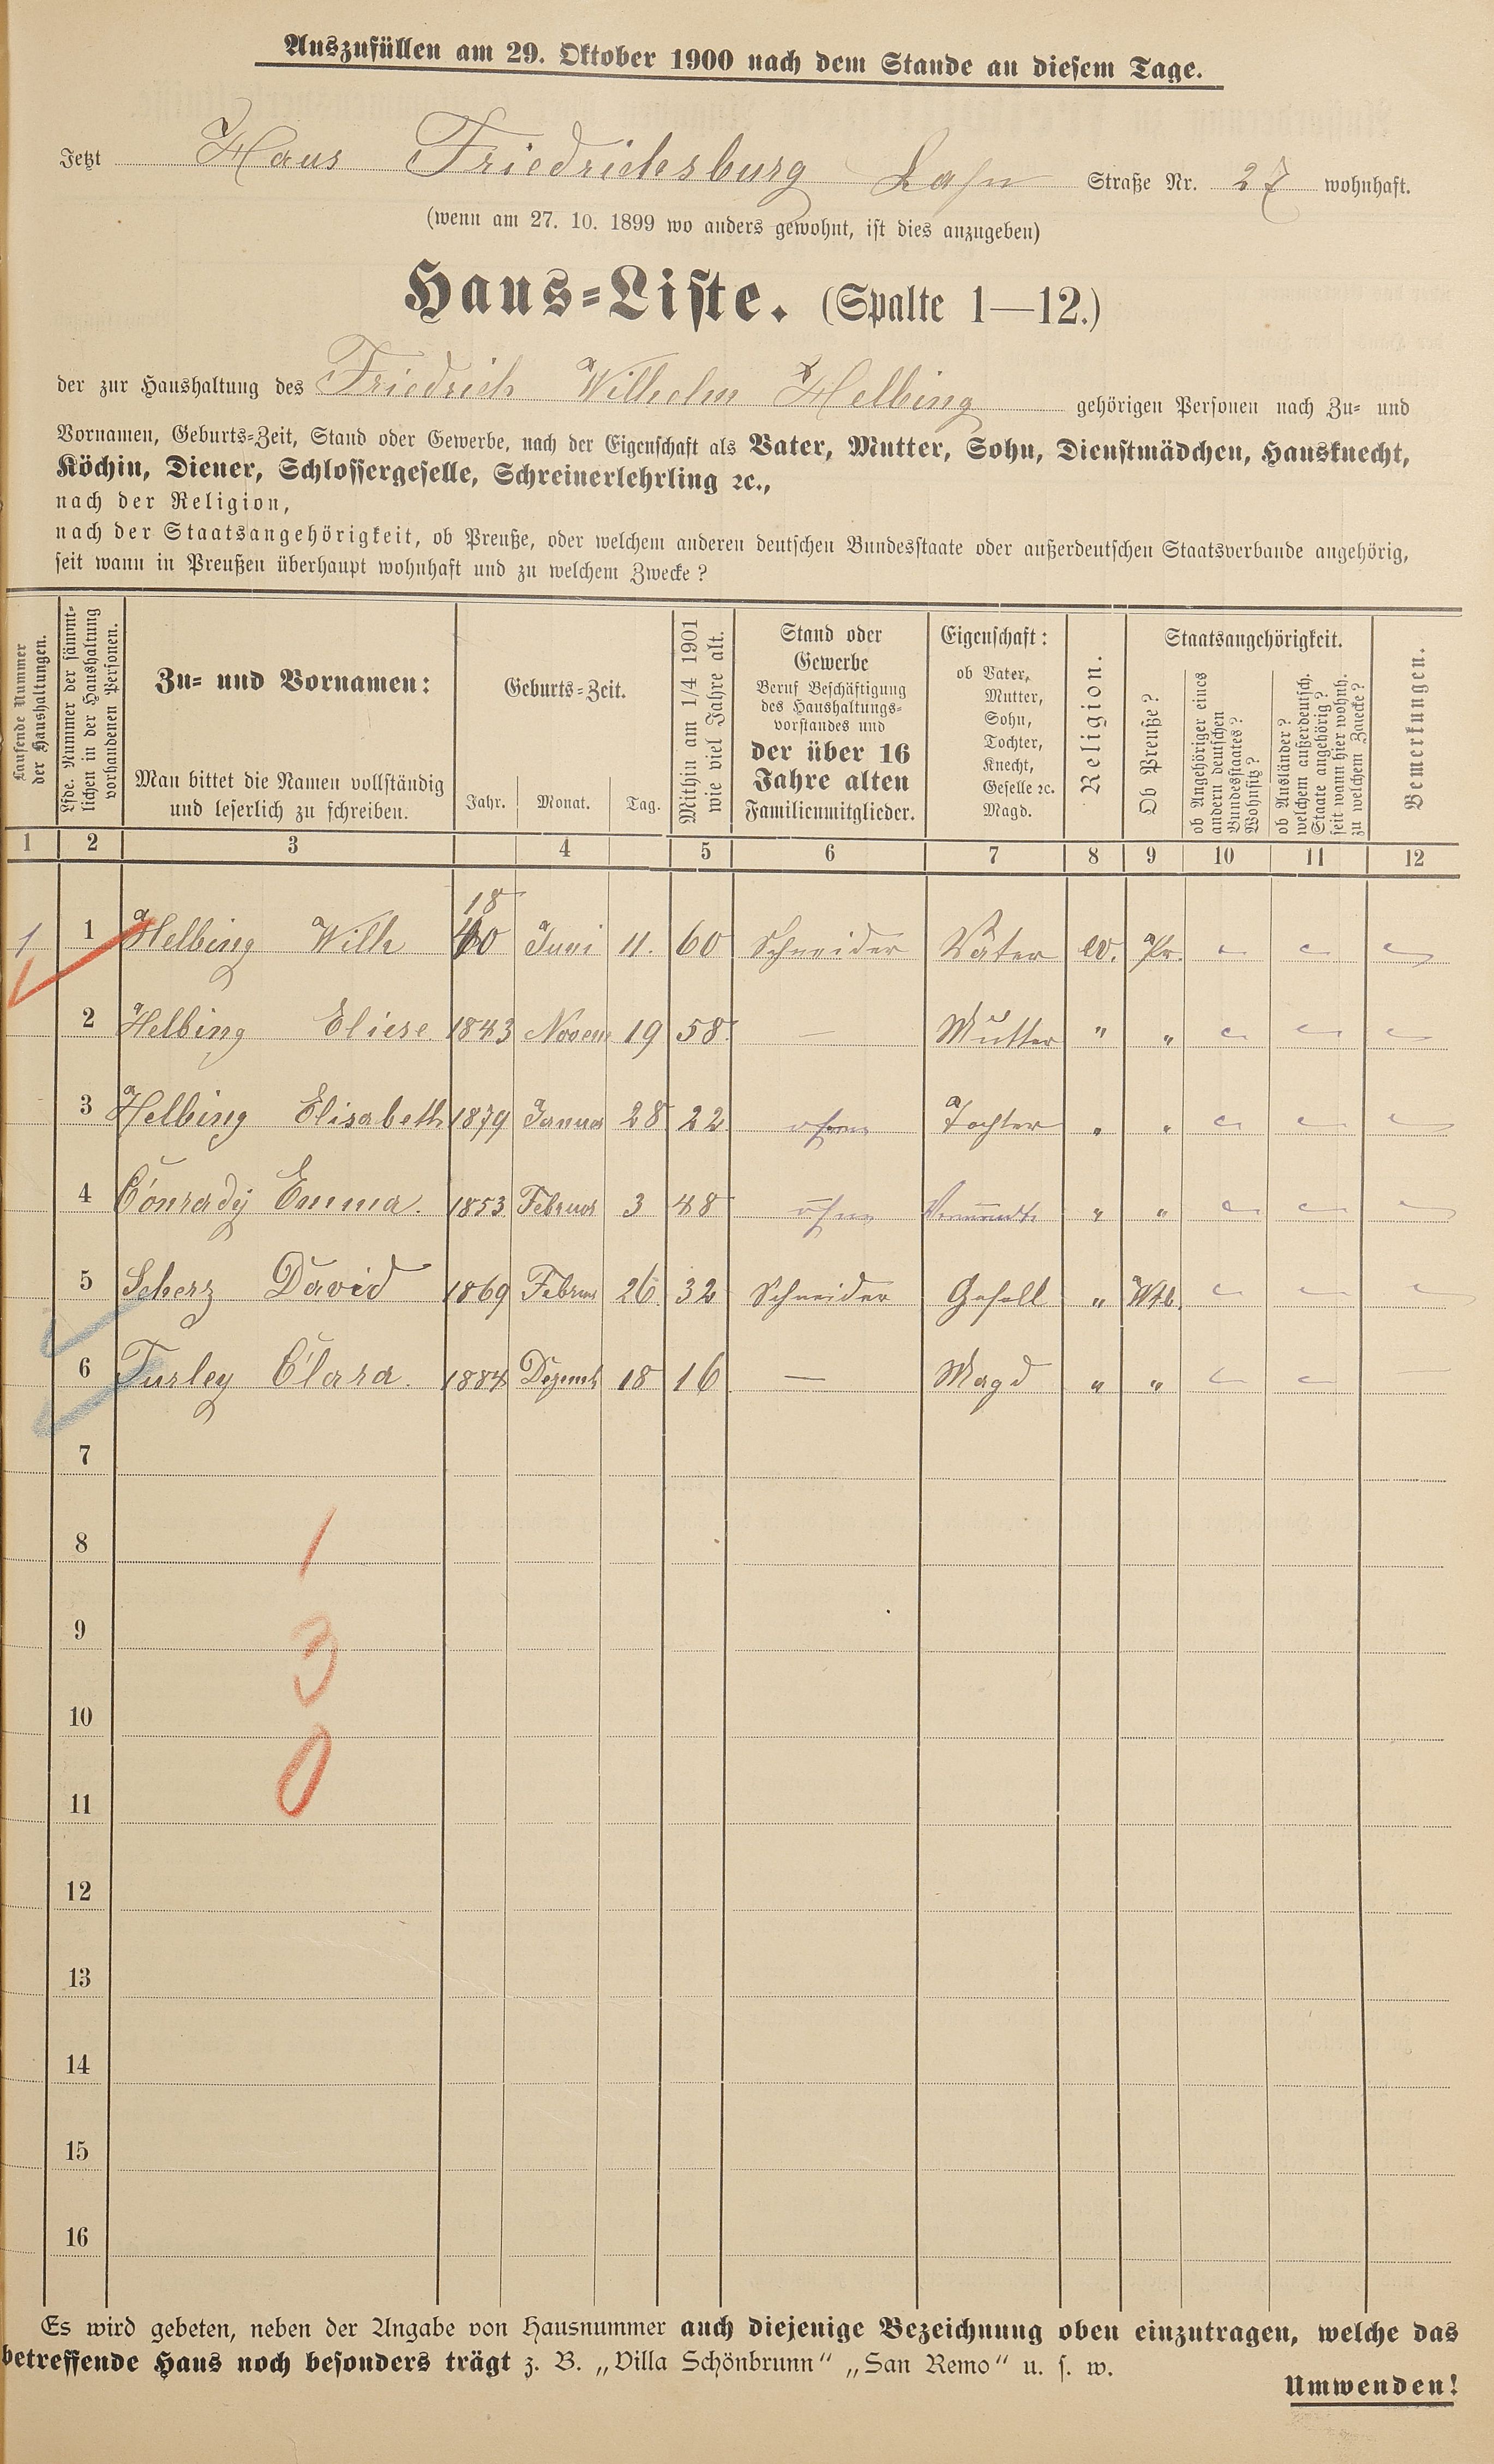 Auszufüllen am 29. Oktober 1900 nach dem Stande an diesem Tage.
Jetzt Haus Friedrichsburg Lahn Straße Nr. 27 wohnhaft.
(wenn am 27. 10. 1899 wo anders gewohnt, ist dies anzugeben)
Haus-Liste. (Spalte 1—12.)
der zur Haushaltung des Friedrich Wilhelm Helbing gehörigen Personen nach Zu- und
Vornamen, Geburts-Zeit, Stand oder Gewerbe, nach der Eigenschaft als Vater, Mutter, Sohn, Dienstmädchen, Hausknecht,
Köchin, Diener, Schlossergeselle, Schreinerlehrling ꝛc.,
nach der Religion,
nach der Staatsangehörigkeit, ob Preuße, oder welchem anderen deutschen Bundesstaate oder außerdeutschen Staatsverbande angehörig,
seit wann in Preußen überhaupt wohnhaft und zu welchem Zwecke?
Laufende Nummer
der Haushaltungen.
Lfde. Nummer der sämmt-
lichen in der Haushaltung
vorhandenen Personen.
Zu- und Vornamen:
Man bittet die Namen vollständig
und leserlich zu schreiben.
Geburts-Zeit.
Jahr. Monat. Tag.
Mithin am 1/4 1901
wie viel Jahre alt.
Stand oder
Gewerbe
Beruf Beschäftigung
des Haushaltungs-
vorstandes und
der über 16
Jahre alten
Familienmitglieder.
Eigenschaft:
ob Vater,
Mutter,
Sohn,
Tochter,
Knecht,
Geselle ꝛc.
Magd.
Religion.
Staatsangehörigkeit.
Ob Preuße?
ob Angehöriger eines
andern deutschen
Bundesstaates?
Wohnsitz?
ob Ausländer?
welchem außerdeutsch.
Staate angehörig?
seit wann hier wohnh.
zu welchem Zwecke?
Bemerkungen.
1 2 3 4 5 6 7 8 9 10 11 12
18
1 1 Helbing Wilh 40 Juni 11. 60 Schneider Vater ev. Pr.
2 Helbing Eliese 1843 Novem 19 58 — Mutter " "
3 Helbing Elisabeth 1879 Januar 28 22 ohne Tochter " "
4 Conrady Emma. 1853 Februar 3 48 ohne Verwandte " "
5 Scherz David 1869 Februar 26 32 Schneider Gesell " Wtb.
6 Turley Clara. 1884 Dezemb 18 16 — Magd " "
7
8 1
9 3
10
11 0
12
13
14
15
16
Es wird gebeten, neben der Angabe von Hausnummer auch diejenige Bezeichnung oben einzutragen, welche das
betreffende Haus noch besonders trägt z. B. „Villa Schönbrunn" „San Remo" u. s. w.
Umwenden!